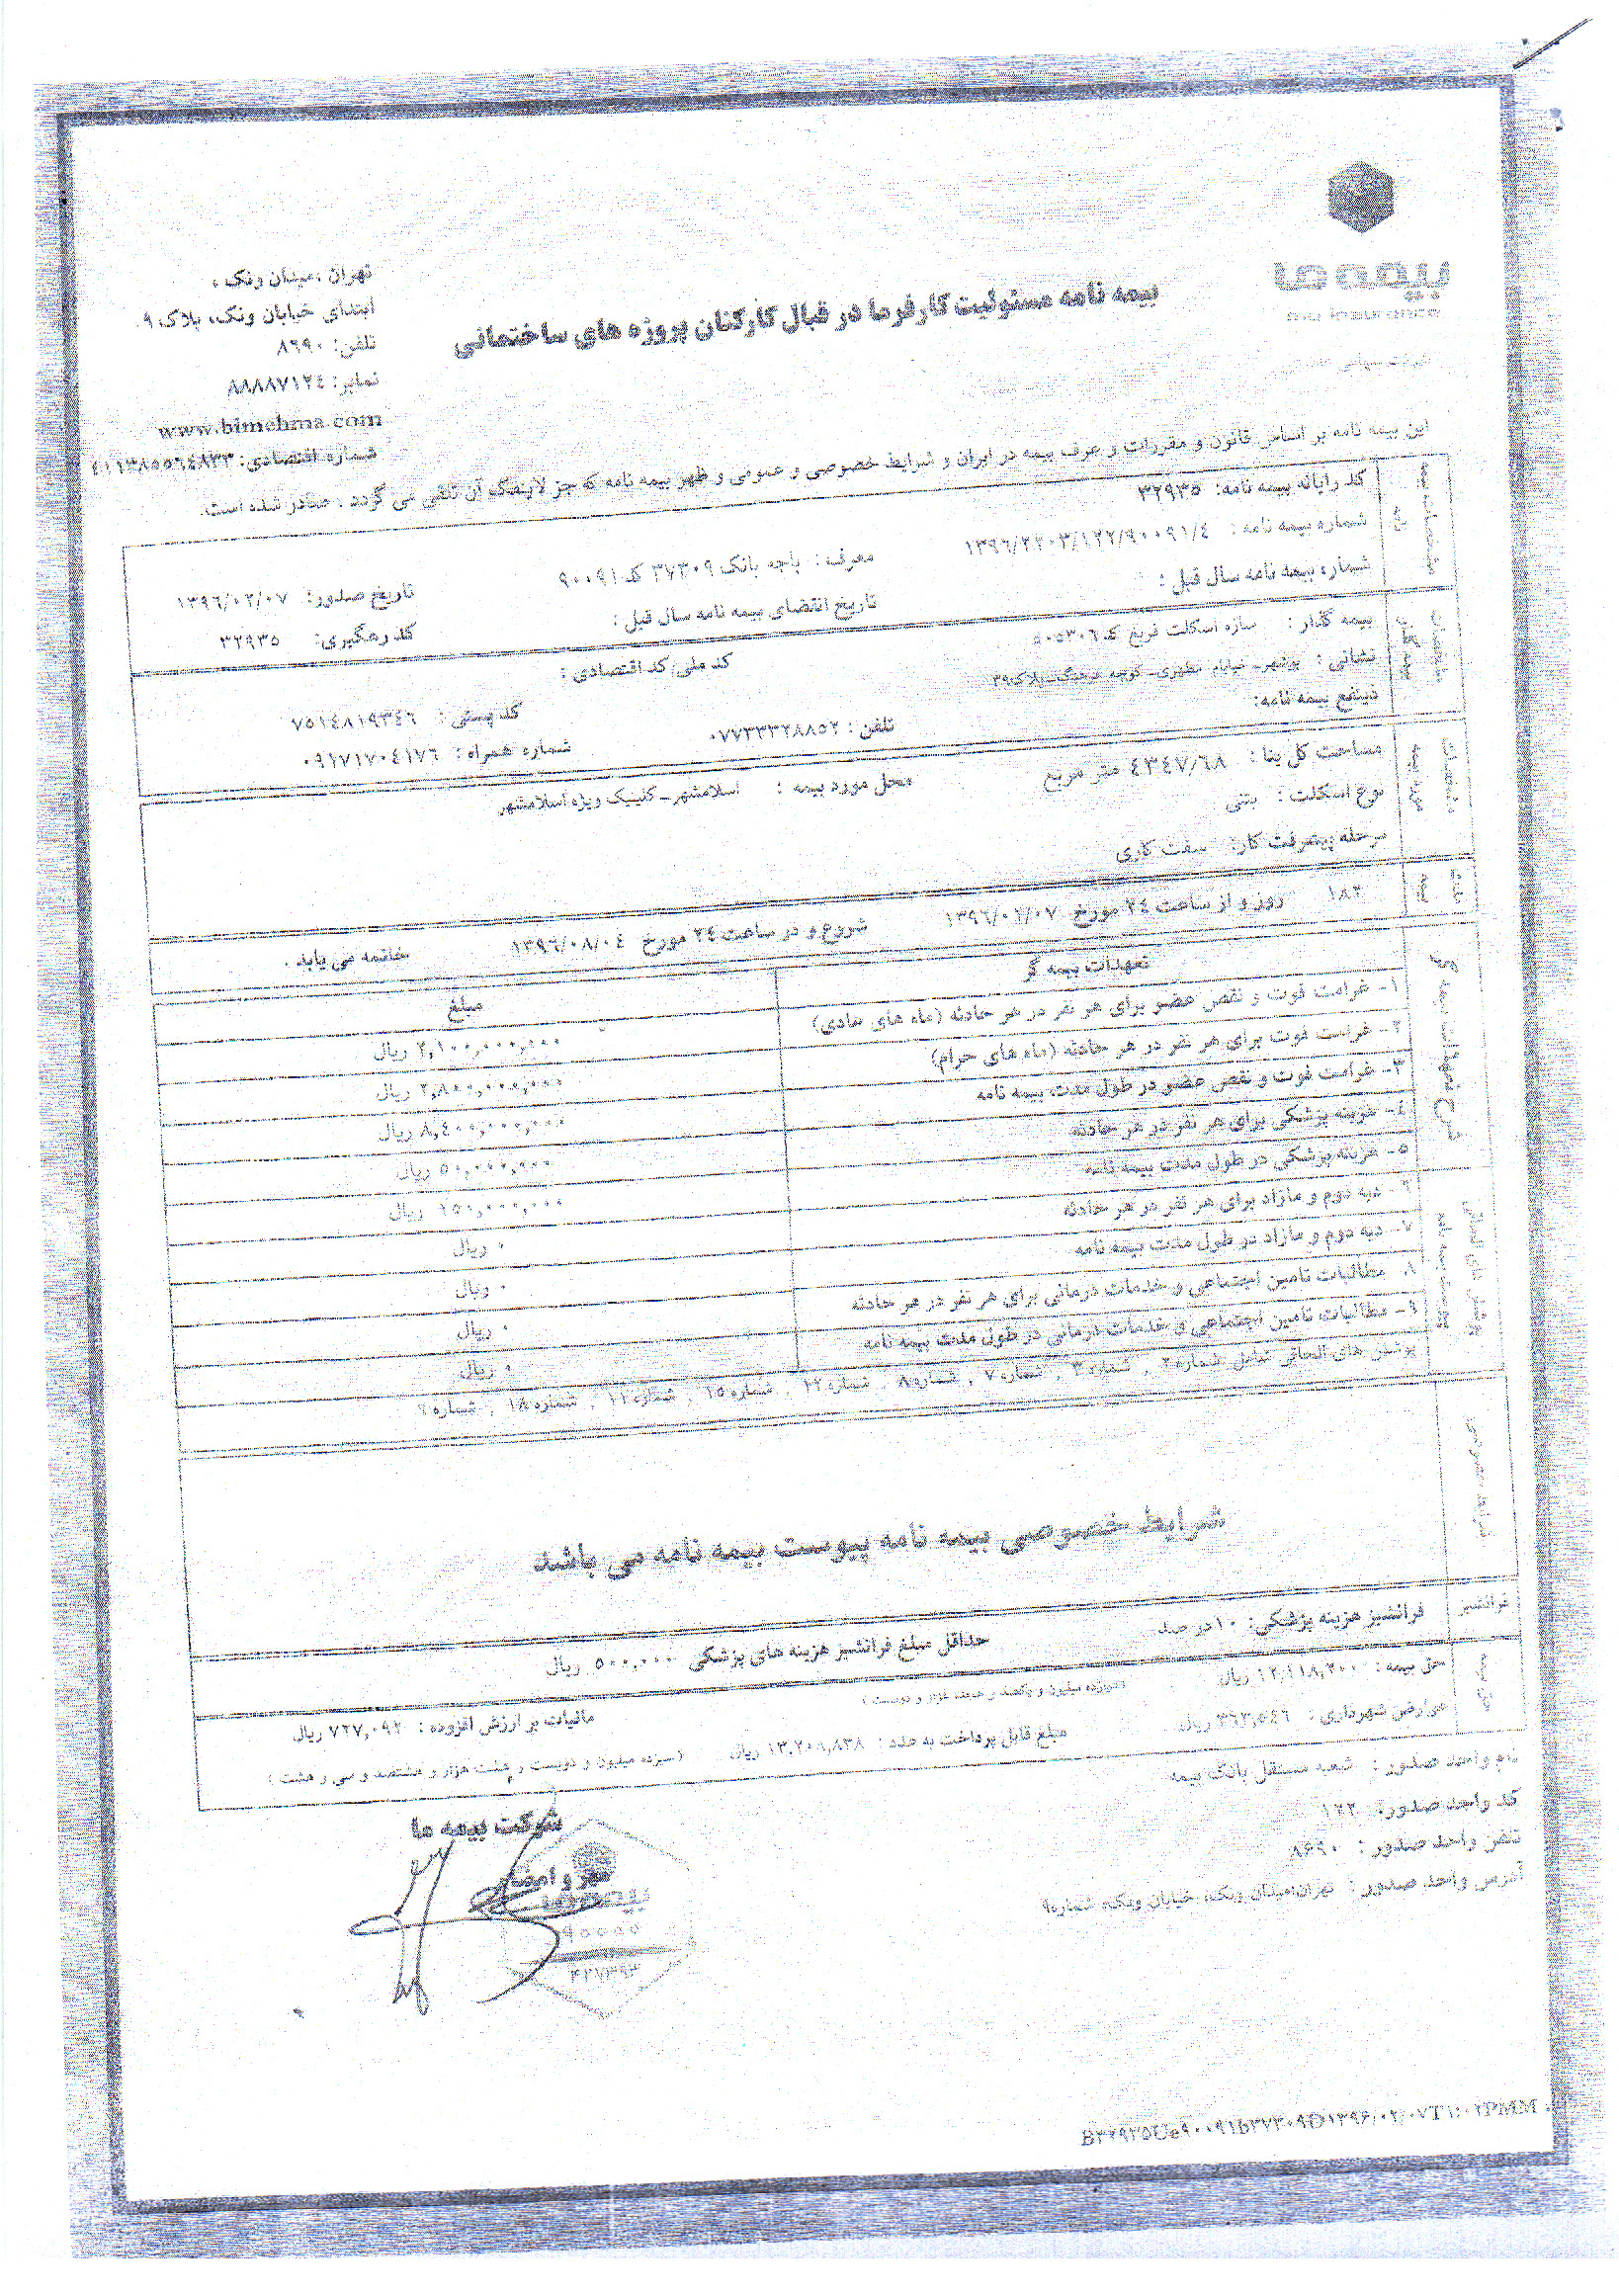 بیمه ما
ma insurance
تهران ،میدان ونک ،
ابتدای خیابان ونک، پلاک ۹
تلفن: ۸۶۹۰
نمابر: ۸۸۸۸۷۱۲۴
www.bimehma.com
شماره اقتصادی: ۴۱۱۳۸۵۵۶۴۸۳۳
بیمه نامه مسئولیت کارفرما در قبال کارکنان پروژه های ساختمانی
این بیمه نامه بر اساس قانون و مقررات و عرف بیمه در ایران و شرایط خصوصی و عمومی و ظهر بیمه نامه که جز لاینفک آن تلقی می گردد ، صادر شده است.
کد رایانه بیمه نامه: ۳۲۹۳۵
شماره بیمه نامه : ۱۳۹۶/۲۲۰۳/۱۲۲/۹۰۰۹۱/۴ معرف : باجه بانک ۳۷۳۰۹ کد ۹۰۰۹۱ تاریخ صدور: ۱۳۹۶/۰۲/۰۷
شماره بیمه نامه سال قبل : تاریخ انقضای بیمه نامه سال قبل : کد رهگیری: ۳۲۹۳۵
بیمه گذار : سازه اسکلت فریخ کد ۹۰۵۳۰۶ کد ملی/کد اقتصادی :
نشانی : بوشهر- خیابام مطهری- کوچه -پلاک۳۹ کد پستی : ۷۵۱۴۸۱۹۳۴۶
ذینفع بیمه نامه: تلفن : ۰۷۷۳۳۳۲۸۸۵۲ شماره همراه : ۰۹۱۷۱۷۰۴۱۷۶
مساحت کل بنا : ۴۳۴۷/۶۸ متر مربع محل مورد بیمه : اسلامشهر-کلینیک ویژه اسلامشهر
نوع اسکلت : بتنی
مرحله پیشرفت کار: سفت کاری
۱۸۳ روز و از ساعت ۲۴ مورخ ۱۳۹۶/۰۲/۰۷ شروع و در ساعت ۲۴ مورخ ۱۳۹۶/۰۸/۰۴ خاتمه می یابد .
تعهدات بیمه گر مبلغ
۱- غرامت فوت و نقص عضو برای هر نفر در هر حادثه (ماه های عادی) ۲,۱۰۰,۰۰۰,۰۰۰ ریال
۲- غرامت فوت برای هر نفر در هر حادثه (ماه های حرام) ۲,۸۰۰,۰۰۰,۰۰۰ ریال
۳- غرامت فوت و نقص عضو در طول مدت بیمه نامه ۸,۴۰۰,۰۰۰,۰۰۰ ریال
۴- هزینه پزشکی برای هر نفر در هر حادثه ۵۰,۰۰۰,۰۰۰ ریال
۵- هزینه پزشکی در طول مدت بیمه نامه ۱۵۰,۰۰۰,۰۰۰ ریال
۶- دیه دوم و مازاد برای هر نفر در هر حادثه ۰ ریال
۷- دیه دوم و مازاد در طول مدت بیمه نامه ۰ ریال
۸- مطالبات تامین اجتماعی و خدمات درمانی برای هر نفر در هر حادثه ۰ ریال
۹- مطالبات تامین اجتماعی و خدمات درمانی در طول مدت بیمه نامه ۰ ریال
پوشش های الحاقی شامل شماره۲ , شماره۳ , شماره۷ , شماره۸ , شماره۱۲ , شماره۱۵ , شماره۱۱ , شماره۱۸ , شماره۹
شرایط خصوصی بیمه نامه پیوست بیمه نامه می باشد
فرانشیز
فرانشیز هزینه پزشکی: ۱۰در صد حداقل مبلغ فرانشیز هزینه های پزشکی ۵۰۰,۰۰۰ ریال
حق بیمه : ۱۲,۱۱۸,۲۰۰ ریال (دوازده میلیون و یکصد و هجده هزار و دویست )
عوارض شهرداری : ۳۶۳,۵۴۶ ریال مالیات بر ارزش افزوده : ۷۲۷,۰۹۲ ریال
مبلغ قابل پرداخت به عدد : ۱۳,۲۰۸,۸۳۸ ریال (سیزده میلیون و دویست و هشت هزار و هشتصد و سی و هشت )
نام واحد صدور : شعبه مستقل بانک بیمه
کد واحد صدور: ۱۲۲
تلفن واحد صدور : ۸۶۹۰
آدرس واحد صدور : تهران،میدان ونک، خیابان ونک، شماره۹
شرکت بیمه ما
مهر و امضاء
بیمه ما
۴۲۷۳۹۳